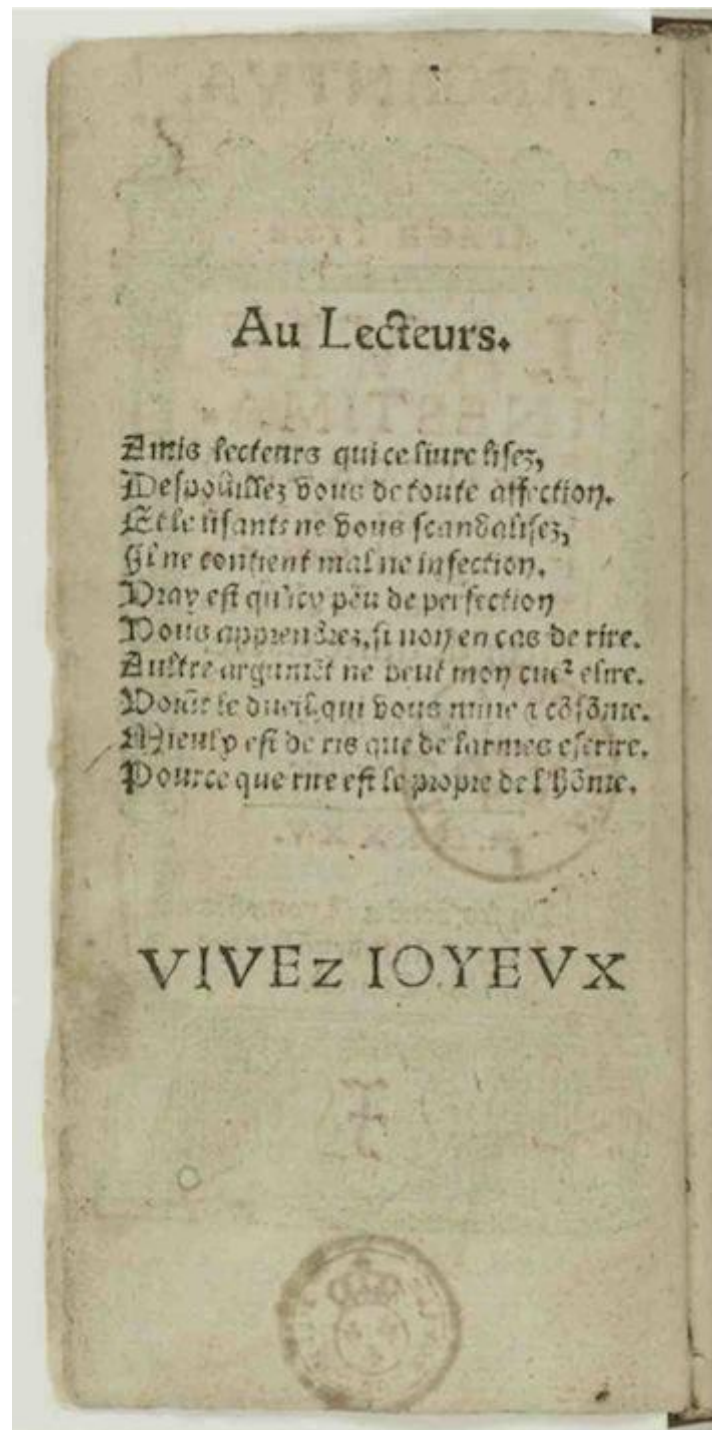 Au Lecteurs.
Amis lecteurs qui ce liure lisez,
Despouillez vous de toute affection.
Et le lisants ne vous scandalisez,
Il ne contient mal ne infection.
Vray est qu'icy peu de perfection
Vous apprendrez, si non en cas de rire.
Aultre argumēt ne peut mon cueꝛ elire.
Voiāt le dueil, qui vous mine ⁊ cōsōme.
Mieulx est de ris que de larmes escrire.
Pource que rire est le propre de l'hōme.
VIVEz IOYEVX